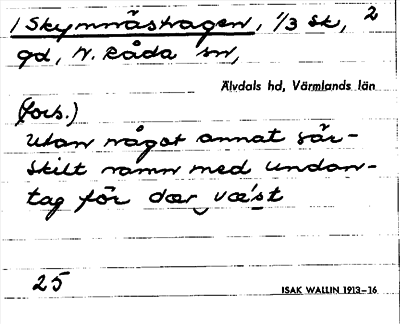 1 Skymnäshagen, 1/3 sk, 2
gd, N. Råda sn,
Älvdals hd, Värmlands län
(forts.)
Utan något annat sär-
skilt namn med undan-
tag för dær væst
25
ISAK WALLIN 1913–16